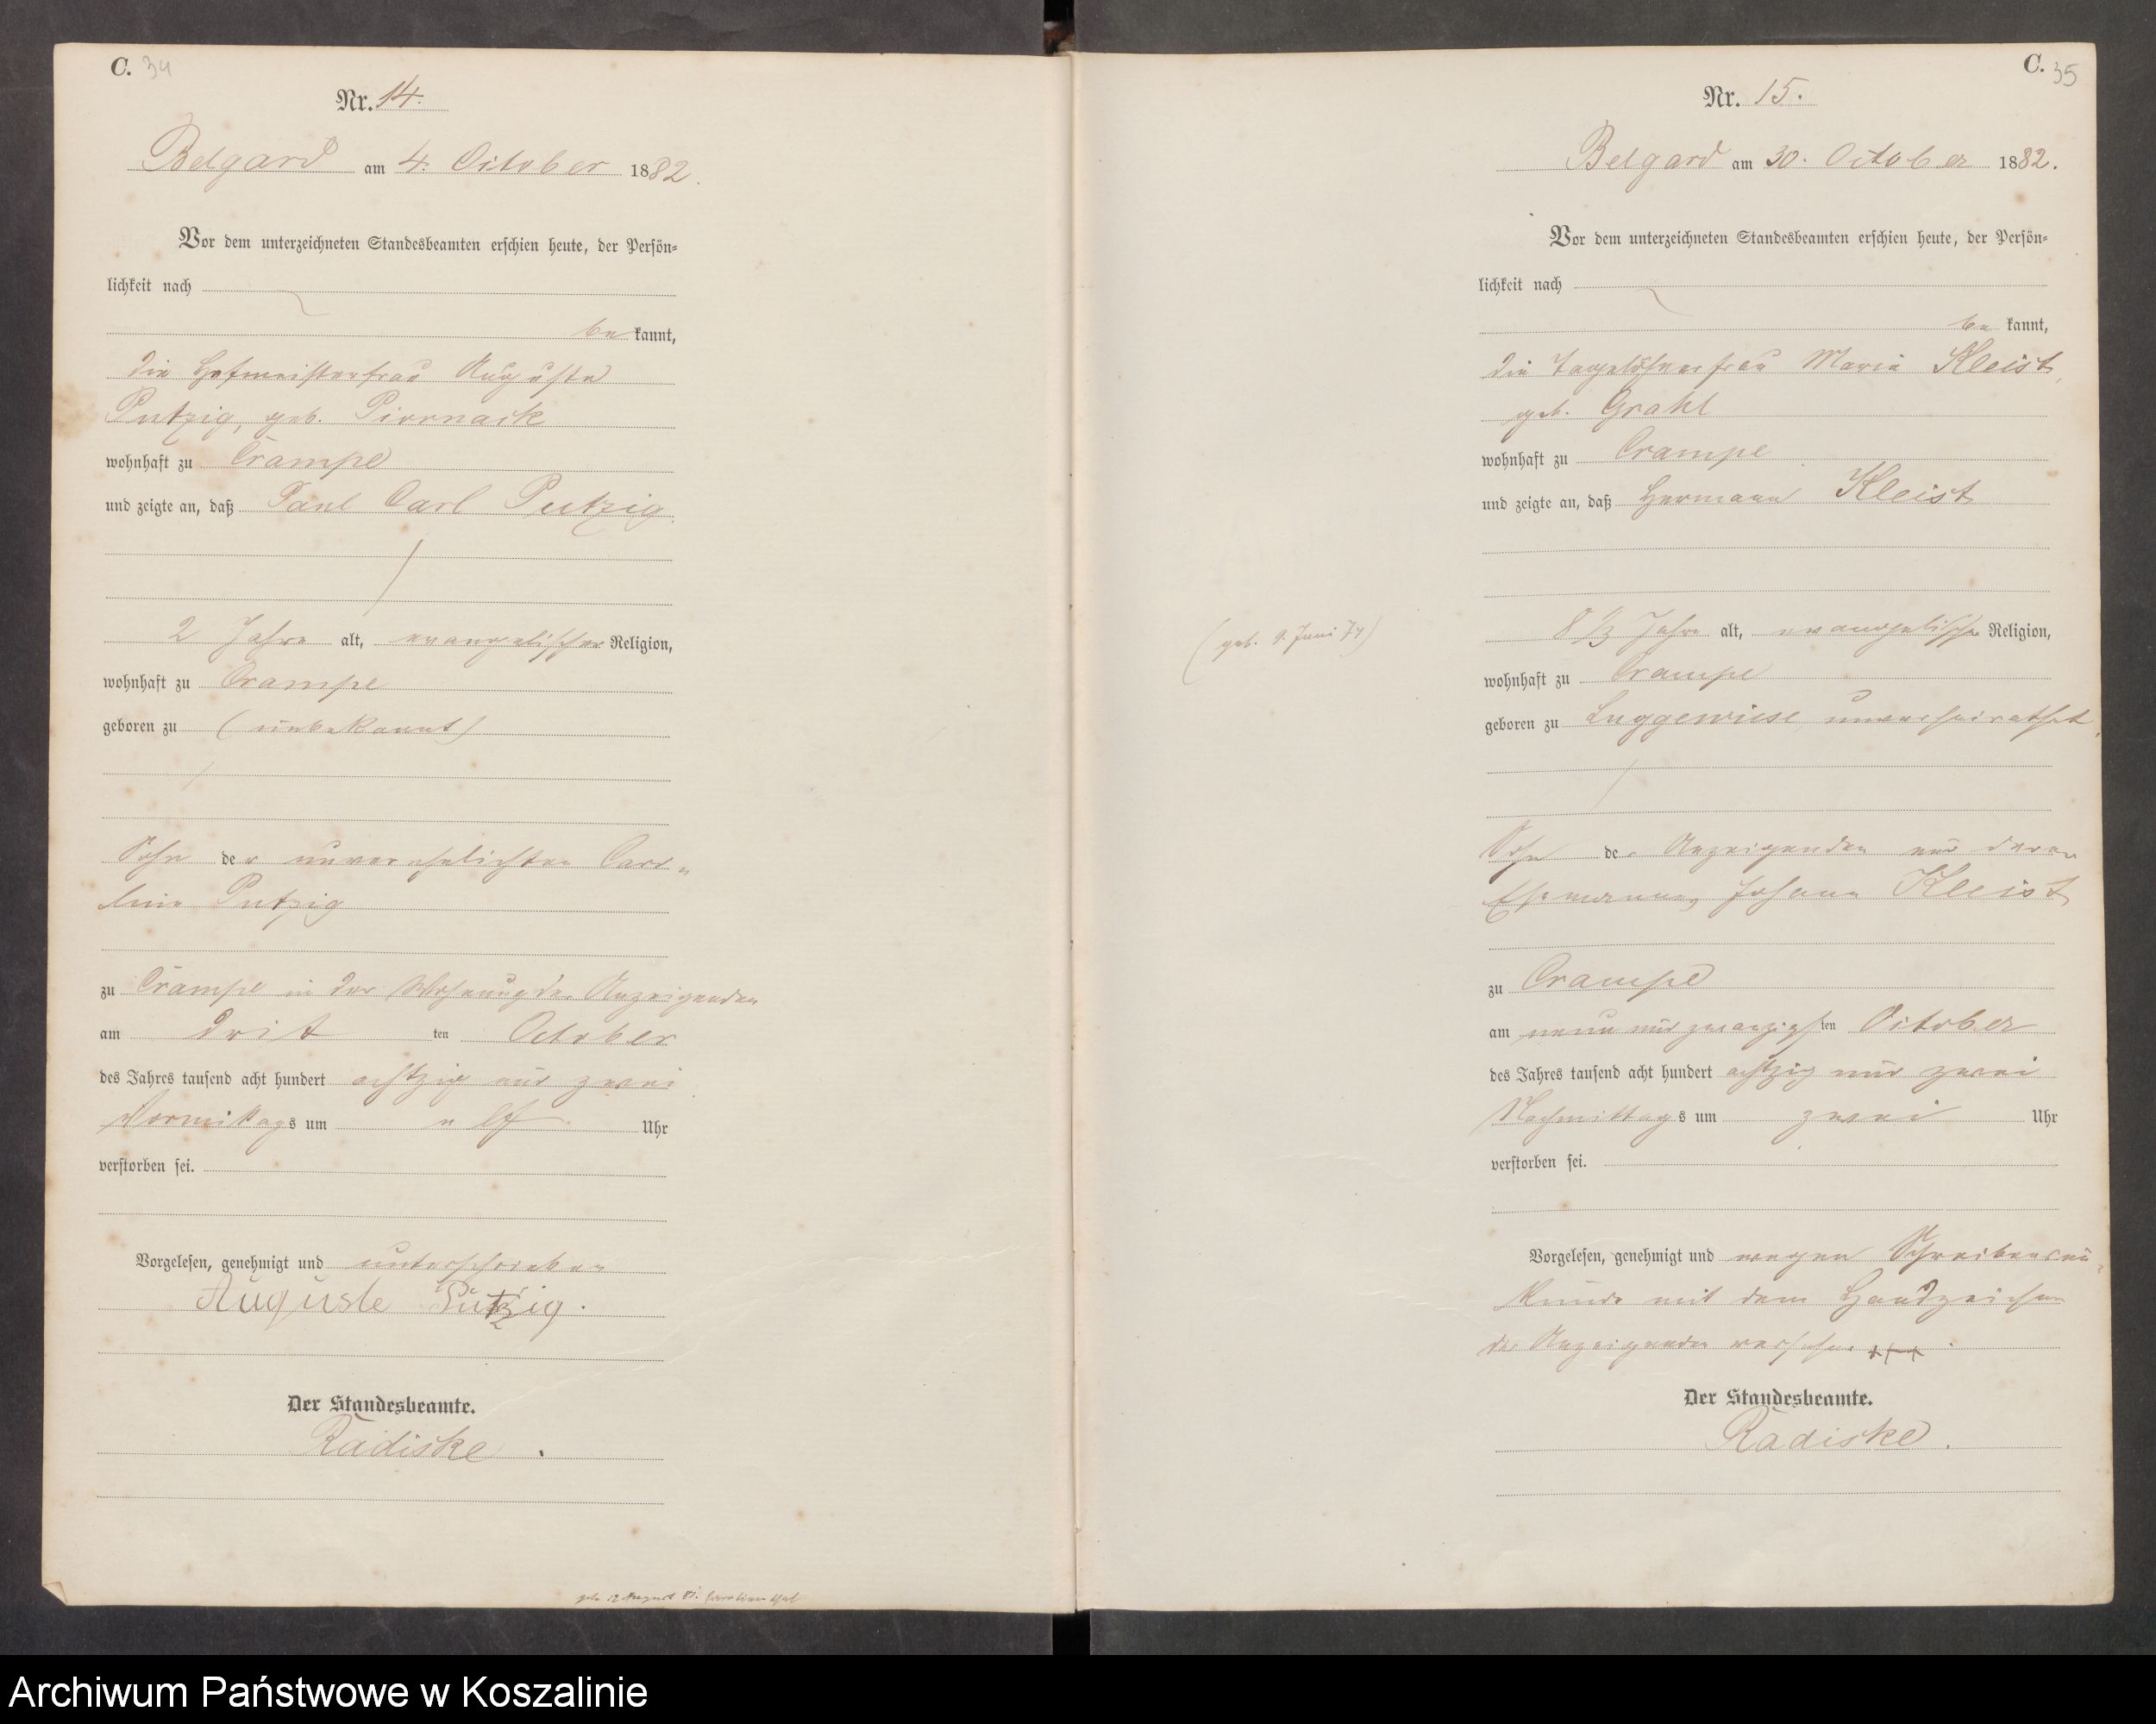 C. 34
Nr. 14.
Belgard am 4. October 1882.
Vor dem unterzeichneten Standesbeamten erschien heute, der Persön-
lichkeit nach
bekannt,
die Hofmeisterfrau Auguste
Putzig, geb. Piornack
wohnhaft zu Crampe
und zeigte an, daß Paul Carl Putzig.
2 Jahre alt, evangelischer Religion,
wohnhaft zu Crampe
geboren zu (unbekannt)
Sohn der unverehelichten Caro-
line Putzig
zu Crampe in der Wohnung der Anzeigenden
am dritten October
des Jahres tausend acht hundert achtzig und zwei
Vormittags um elf Uhr
verstorben sei.
Vorgelesen, genehmigt und unterschrieben
Auguste Putzig.
Der Standesbeamte.
Radiske.
geb. 12 August 81.
C. 35
Nr. 15.
Belgard am 30. October 1882.
Vor dem unterzeichneten Standesbeamten erschien heute, der Persön-
lichkeit nach
bekannt,
die Tagelöhnerfrau Marie Kleist,
geb. Grahl
wohnhaft zu Crampe
und zeigte an, daß Hermann Kleist
(geb. 9. Juni 74)
8 1/3 Jahre alt, evangelischer Religion,
wohnhaft zu Crampe
geboren zu Luggewiese, unverheirathet,
Sohn der Anzeigenden und deren
Ehemannes Johann Kleist
zu Crampe
am neun und zwanzigsten October
des Jahres tausend acht hundert achtzig und zwei
Nachmittags um zwei Uhr
verstorben sei.
Vorgelesen, genehmigt und wegen Schreibensun-
kunde mit dem Handzeichen
der Anzeigenden versehen +++.
Der Standesbeamte.
Radiske.
Archiwum Państwowe w Koszalinie